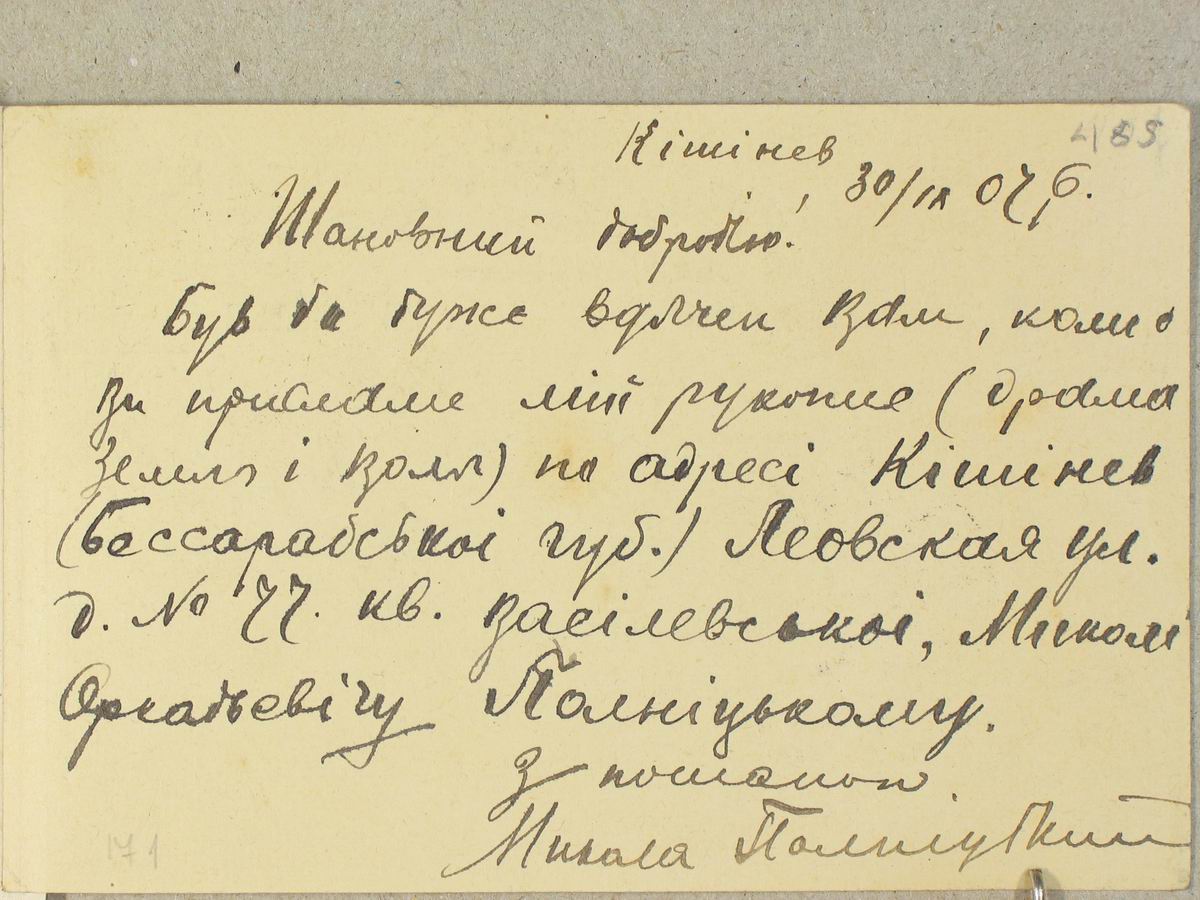 485
Кішінев
30/IX 07 р.
Шановний добродію!
Був би дуже вдячен Вам, коли б
Ви прислали мій рукопис (драма
Земля і Воля) по адресі Кішінев
(Бессарабської губ.) Леовская ул.
д. № 77. кв. Васілевської, Миколі
Аркадьєвічу Полніцькому.
З пошаною
Микола
171